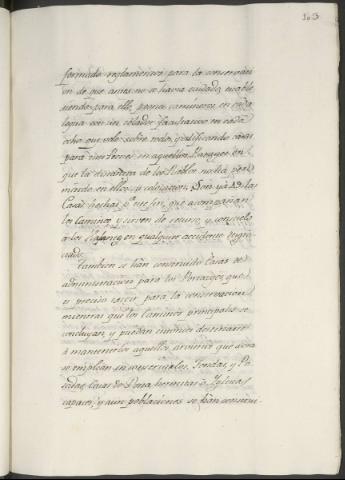 103
formado reglamentos para la conservacion
en de que antes no se havia cuidado, estable
ciendo para ello, peones camineros en cada
legua con un celador facultativo en cada
ocho que vele sobre todo, y edificando casas
para dichos Peones en aquellos Parages en
que la distancia de los Pueblos no ha per
mitido en ellos su colocacion. Son ya 49 las
Casas hechas que acompañan
los caminos y sirven de recurso y consuelo
à los Pasageros en qualquier accidente desgra
ciado.
Tambien se han construido Casas de
administracion para los Portazgos, que
es preciso exigir para la conservacion
mientras que los caminos principales se
concluyan, y puedan entonces destinarse
à mantenerlos aquellos arvitrios que ahora
se emplean en construirlos. Fondas, y Po
sadas, Casas de Posta, hermitas è Yglesias
capaces, y aun poblaciones se han construi